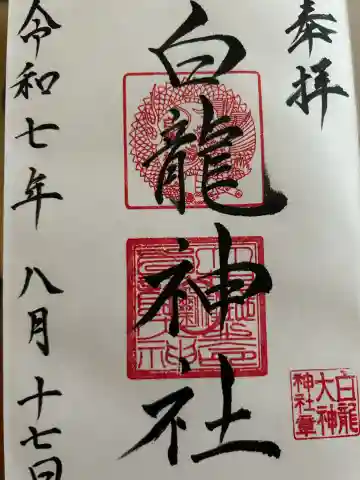 奉拝
白龍神社
令和七年 八月 十七日
白龍
大神
神社章